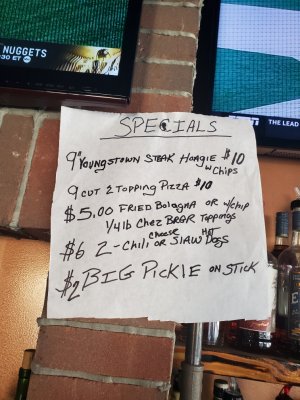 NUGGETS
30 ET
THE LEAD
SPECIALS
9" YOUNGSTOWN STEAK HOAGIE $10
w CHIPS
9 CUT 2 TOPPING PIZZA $10
$5.00 FRIED BOLOGNA OR w/CHIP
1/4 lb CHEZ BRGR TOPPINGS
CHEESE HOT
$6 2 - CHILI OR SLAW DOGS
$2 BIG PICKLE ON STICK